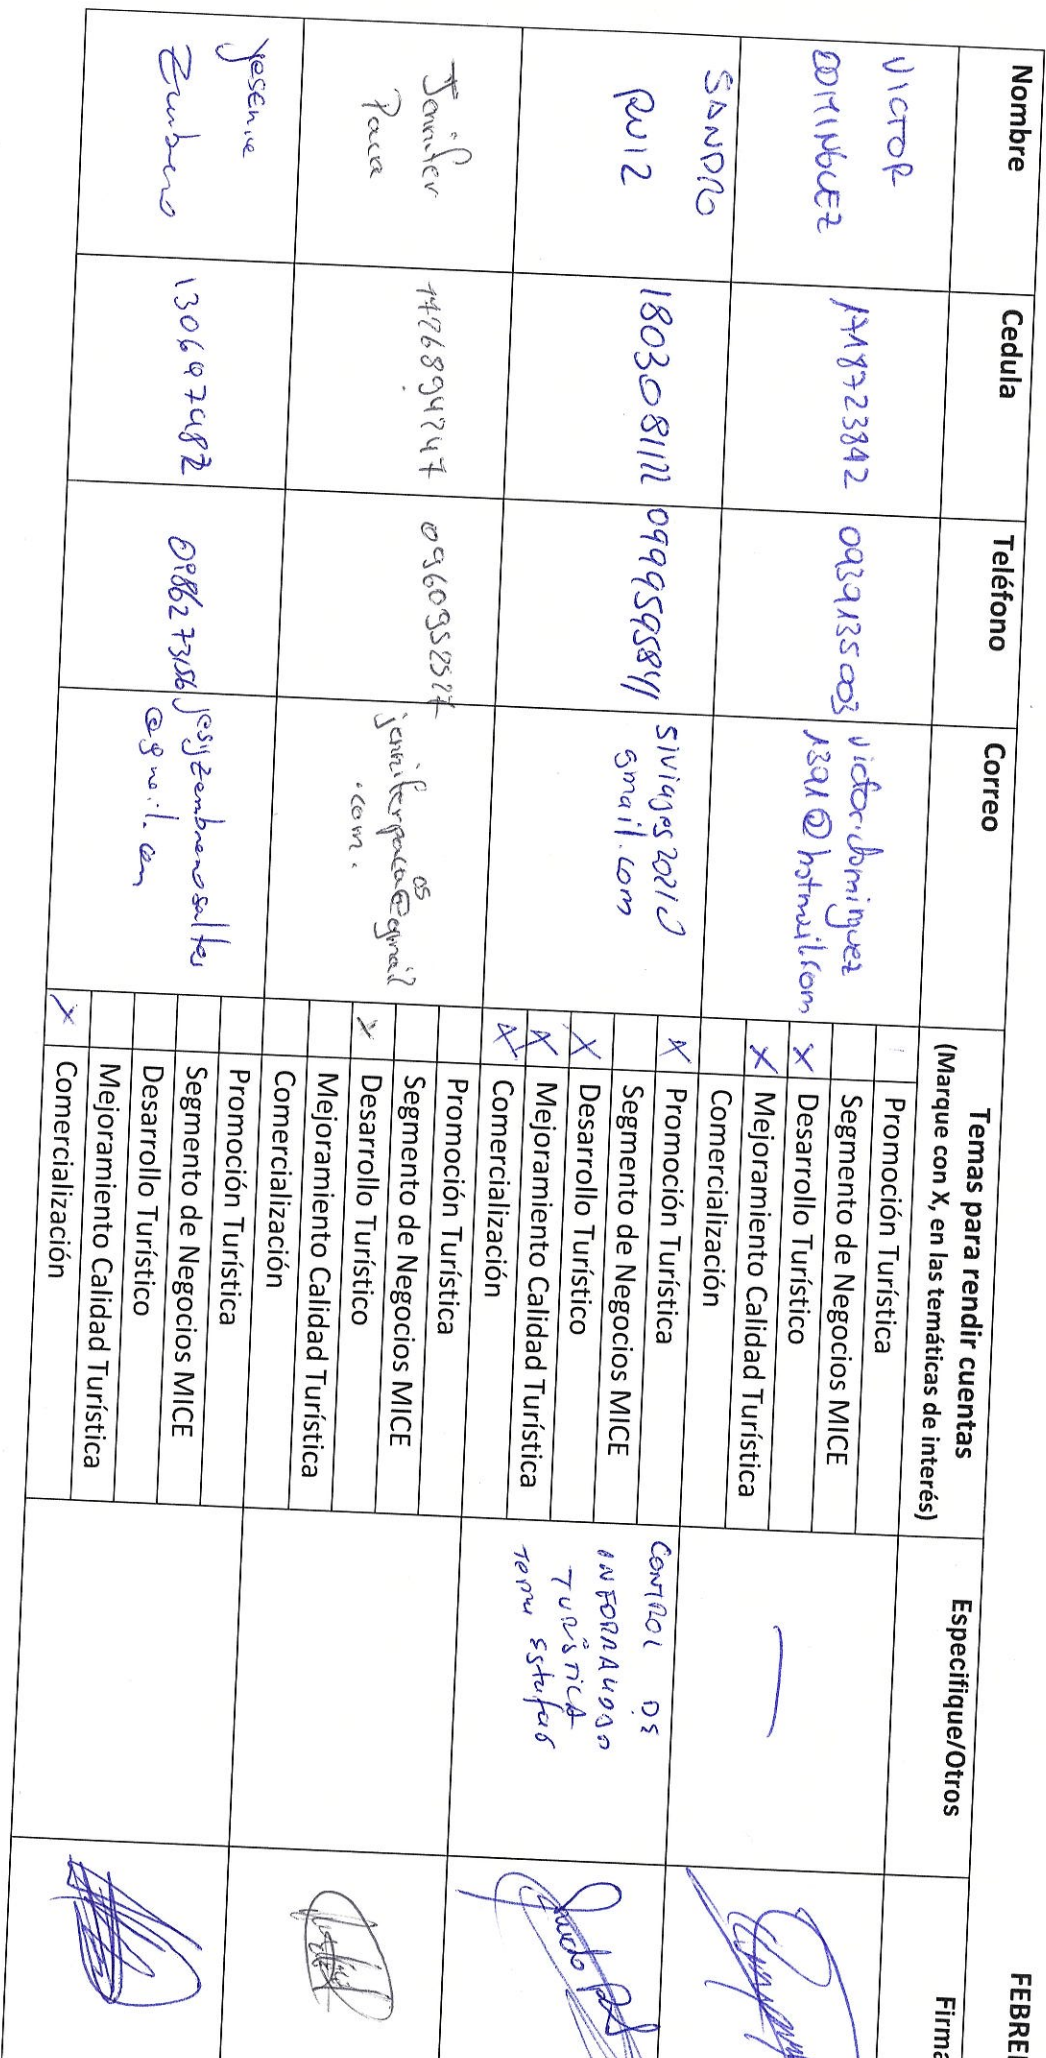 FEBRE
Nombre
Cedula
Teléfono
Correo
Temas para rendir cuentas
(Marque con X, en las temáticas de interés)
Especifique/Otros
Firma
VICTOR
DOMINGUEZ
1718723842
0939135003
victor.dominguez
1391@hotmail.com
Promoción Turística
Segmento de Negocios MICE
X Desarrollo Turístico
X Mejoramiento Calidad Turística
Comercialización
—
SANDRO
RUIZ
1803081122
0999959584
siviajes2021@
gmail.com
X Promoción Turística
Segmento de Negocios MICE
X Desarrollo Turístico
X Mejoramiento Calidad Turística
X Comercialización
CONTROL DE
INFORMACION
TURÍSTICA
TEMA Estafas
Jennifer
Paca
1726894747
jenniferpaca05@gmail
.com.
Promoción Turística
Segmento de Negocios MICE
X Desarrollo Turístico
Mejoramiento Calidad Turística
Comercialización
Yesenia
Zambrano
1306474872
0986273156
@gmail.com
Promoción Turística
Segmento de Negocios MICE
Desarrollo Turístico
Mejoramiento Calidad Turística
X Comercialización